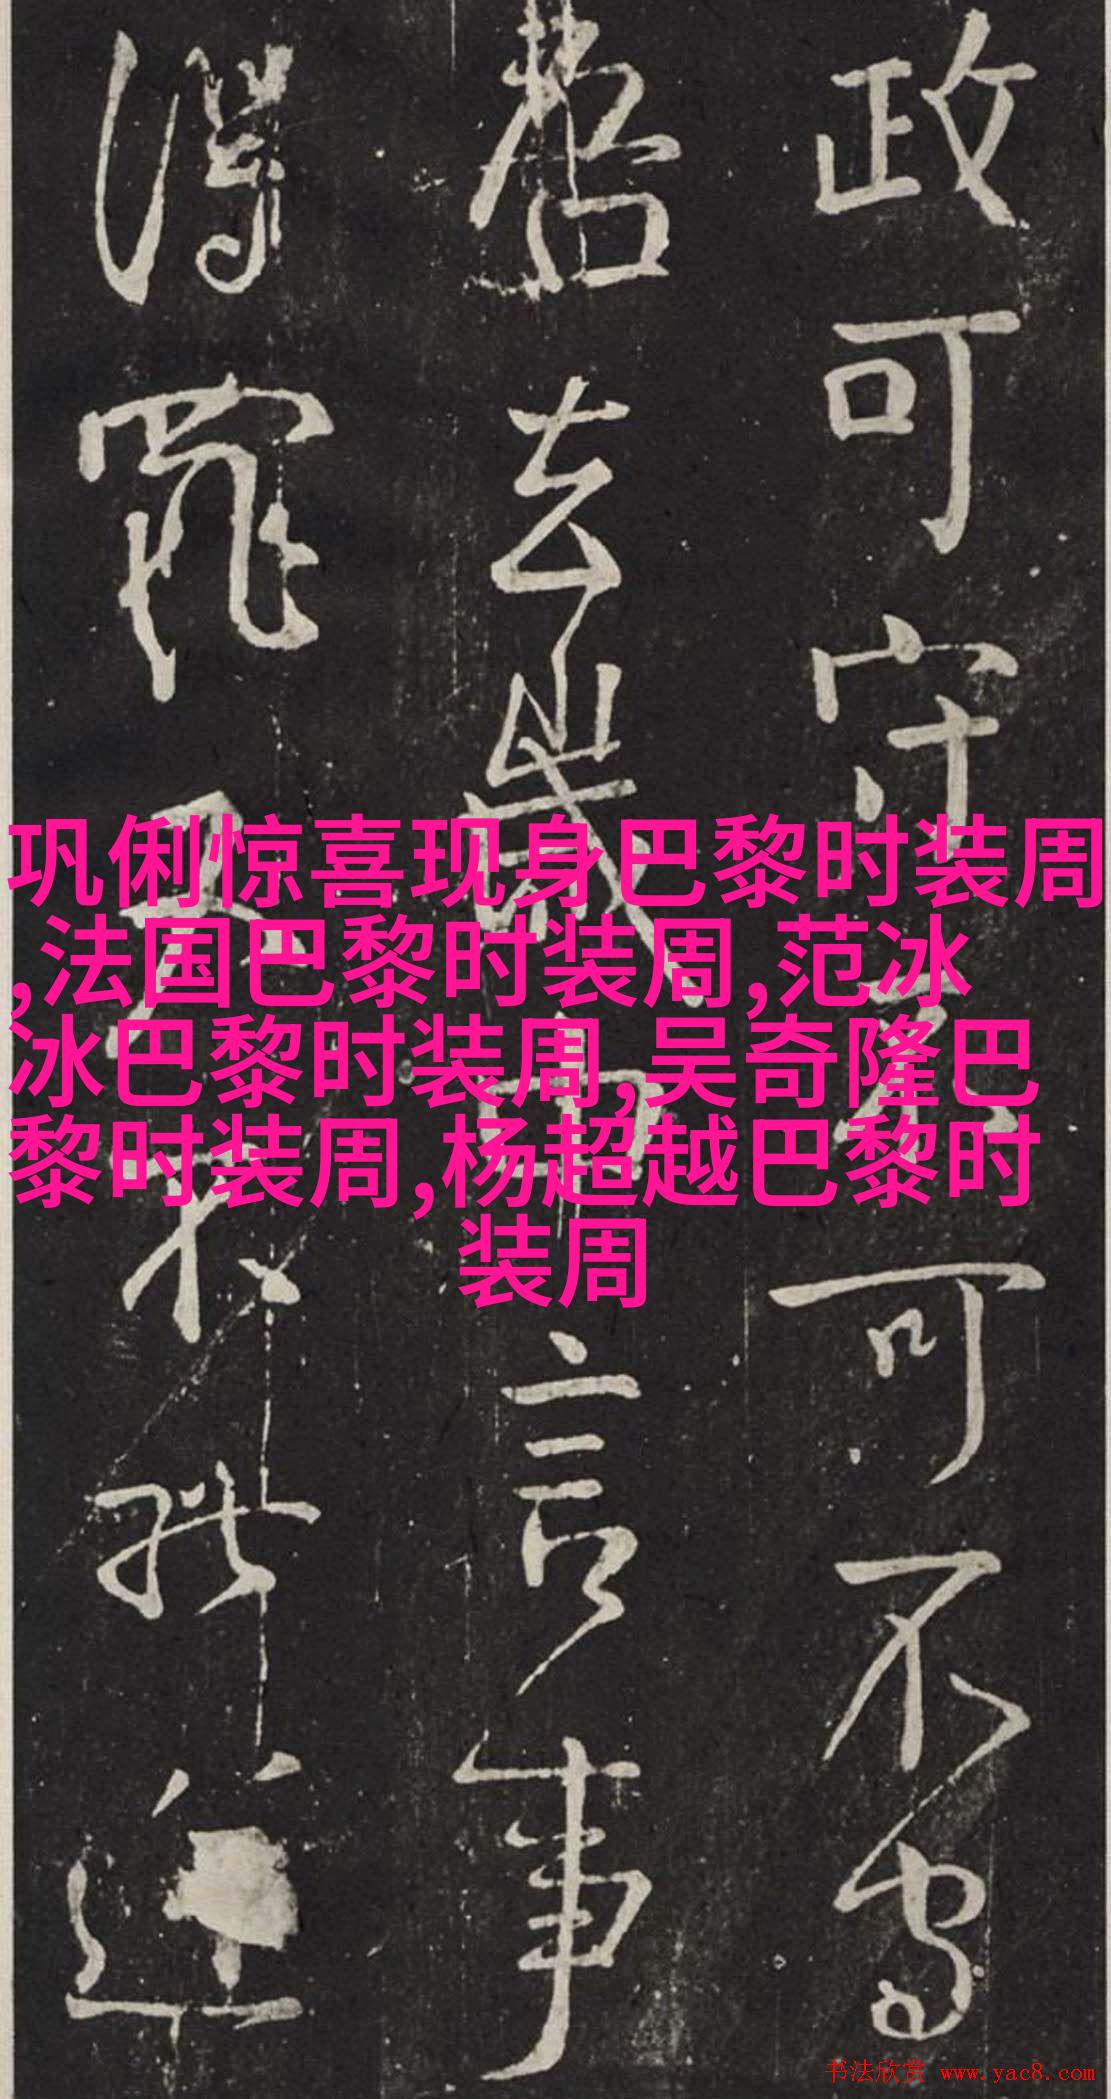 政可守不可不守
吾去歲中言事
得罪又不能逆
巩俐惊喜现身巴黎时装周
,法国巴黎时装周,范冰
冰巴黎时装周,吴奇隆巴
黎时装周,杨超越巴黎时
装周
书法欣赏 www.yac8.com